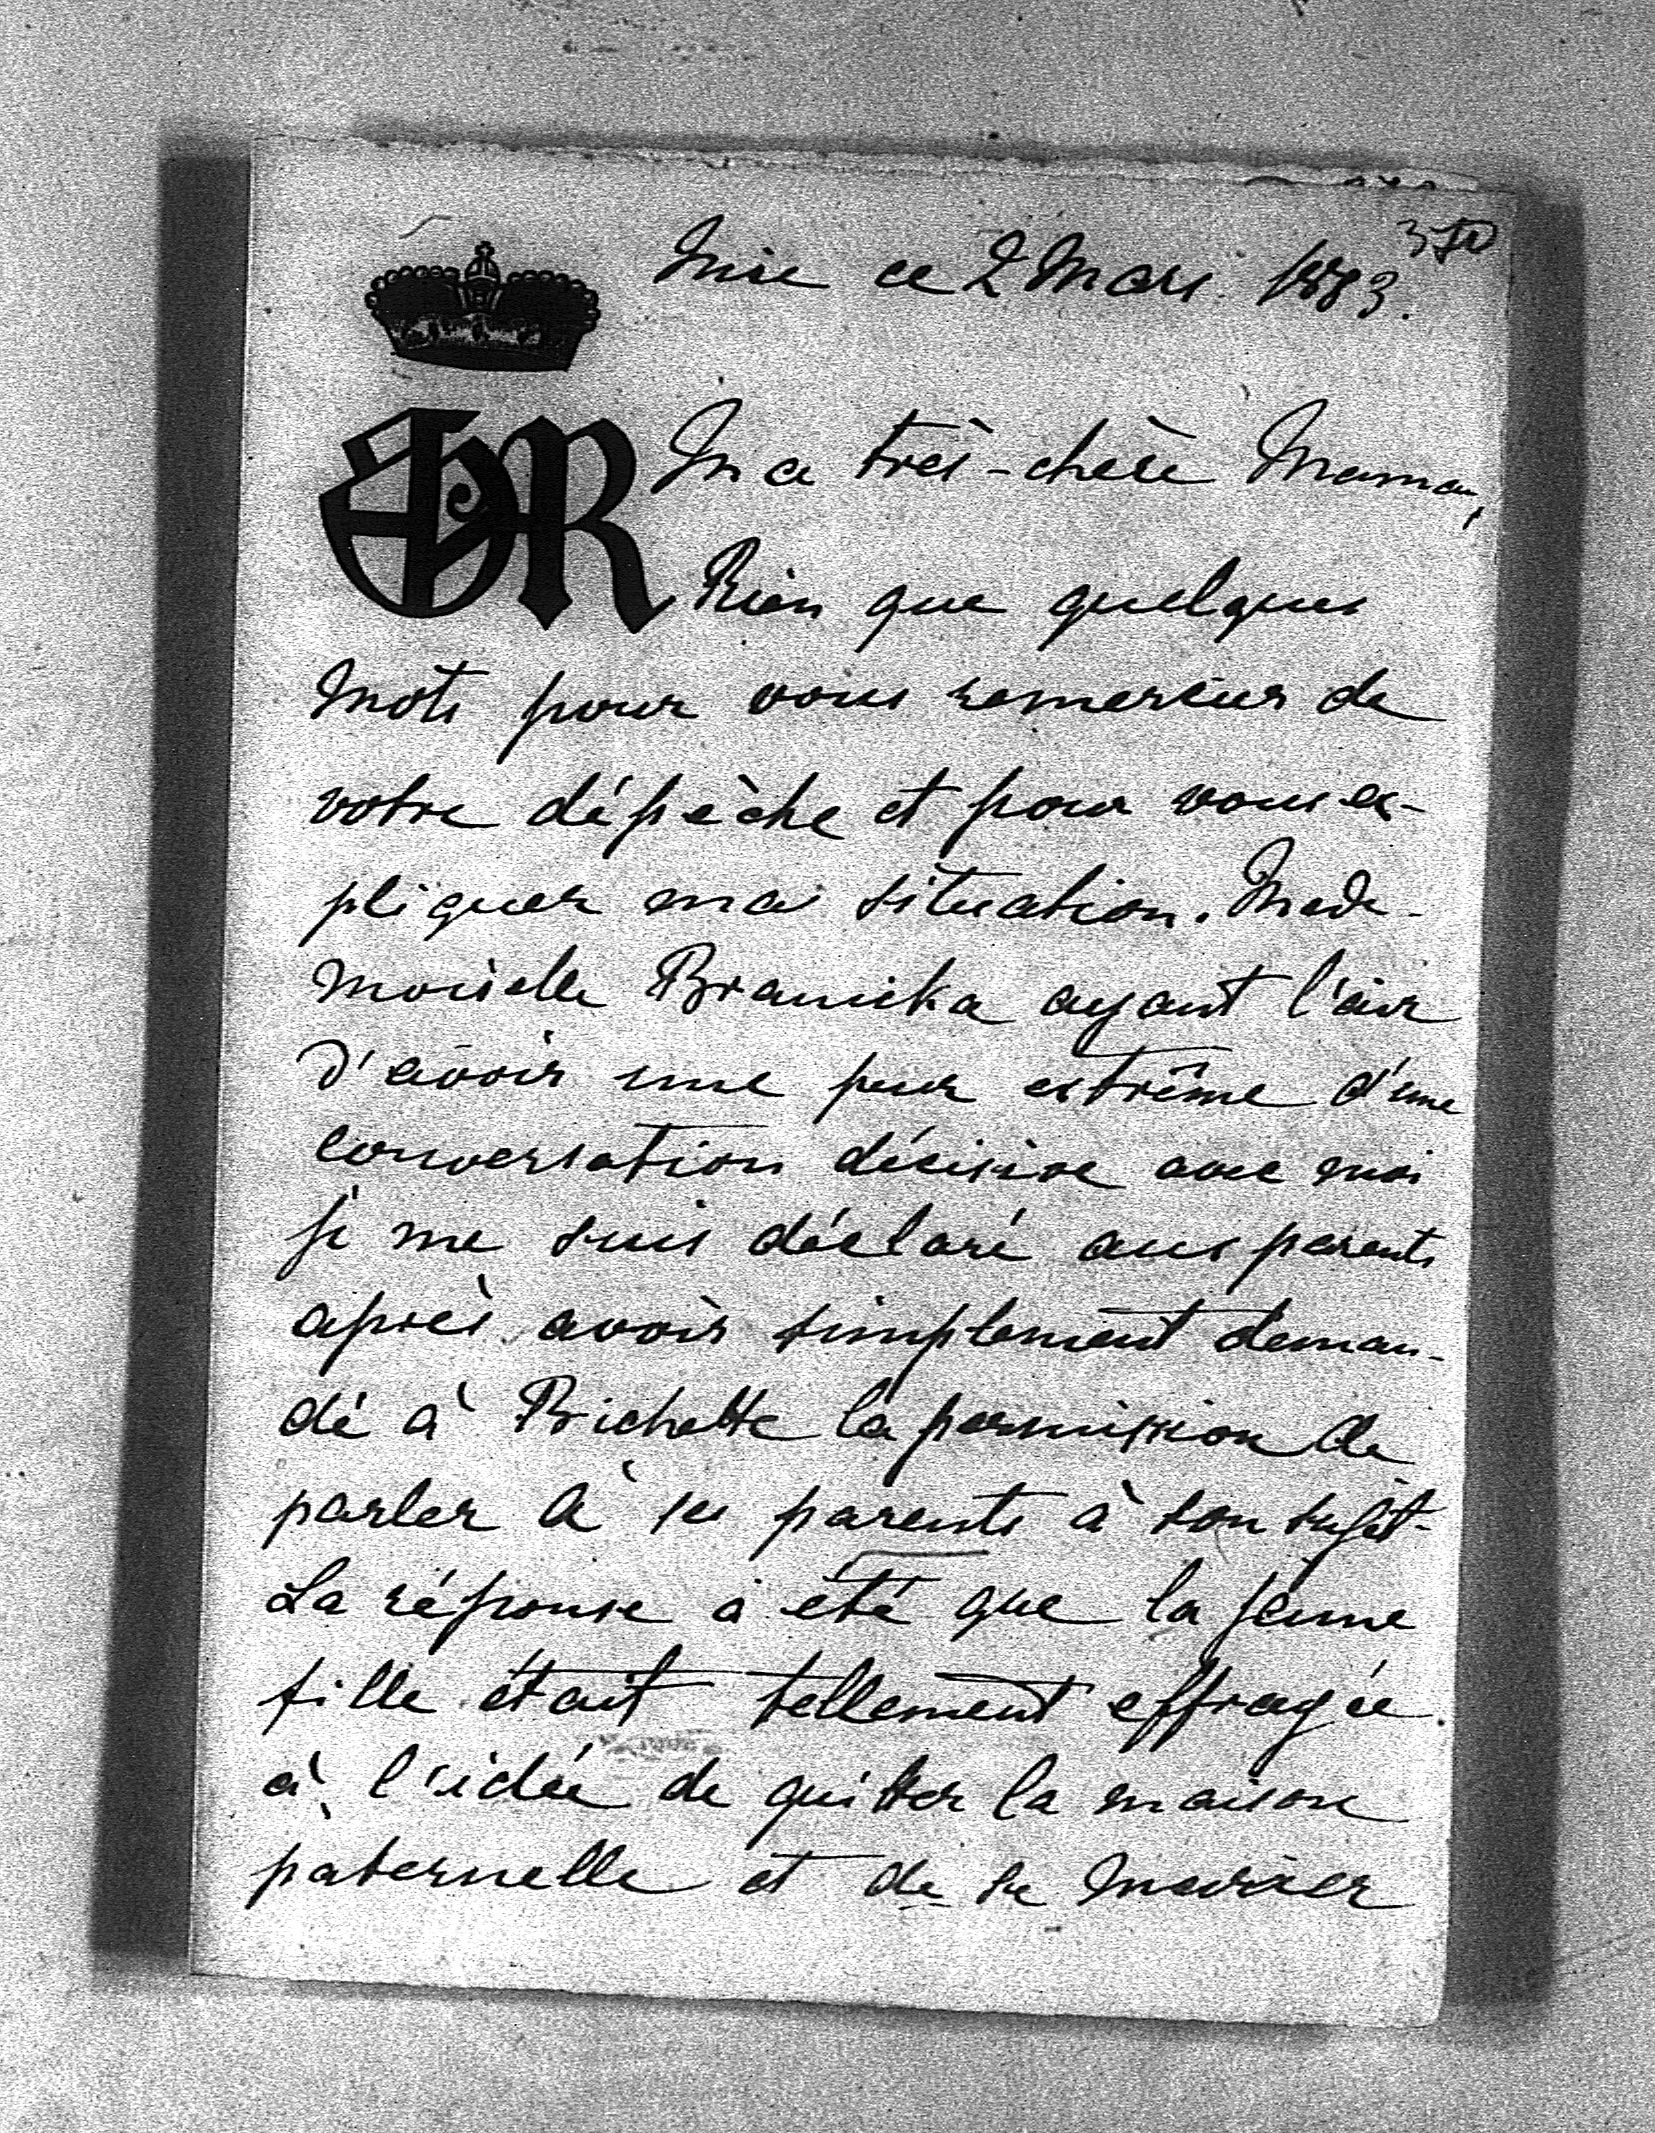 Nice ce 2 Mars 1883.
Ma très-chère Maman,
Rien que quelques
mots pour vous remercier de
votre dépèche et pour vous ex-
pliquer ma situation. Made-
moiselle Branicka ayant l'air
d'avoir une peur extrême d'une
conversation décisive avec moi
je me suis déclaré aux parents
après avoir simplement deman-
dé à Bichette la permission de
parler à ses parents à son sujet.
La réponse a été que la jeune
fille était tellement effrayée
à l'idée de quitter la maison
paternelle et de se marier